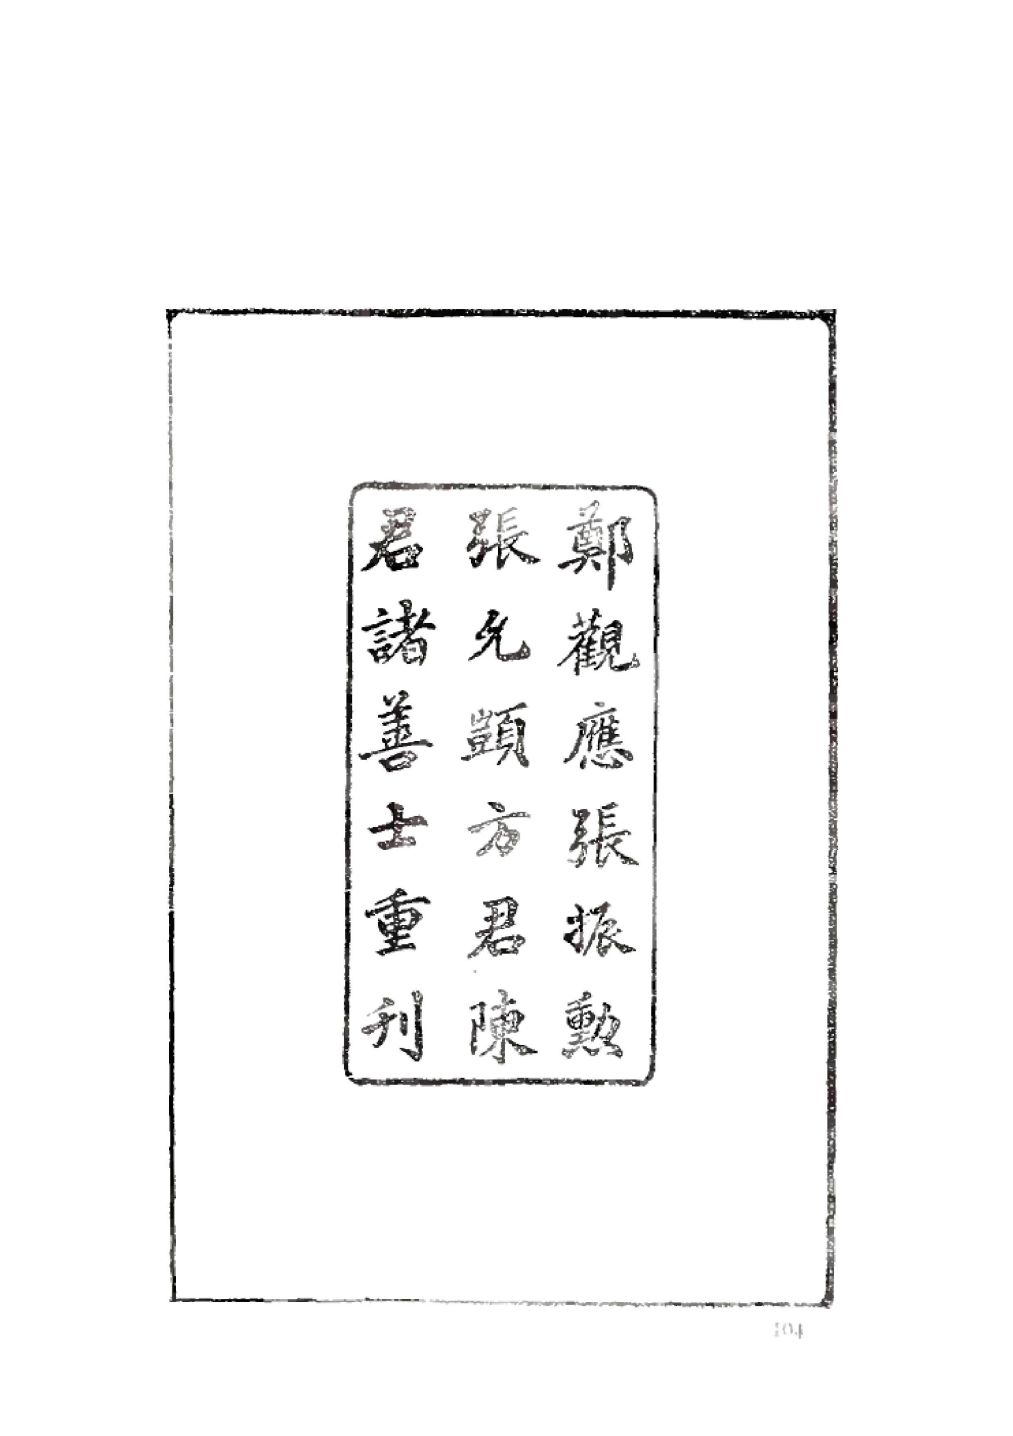 鄭觀應張振勲
張允顗方君陳
君諸善士重刊
104